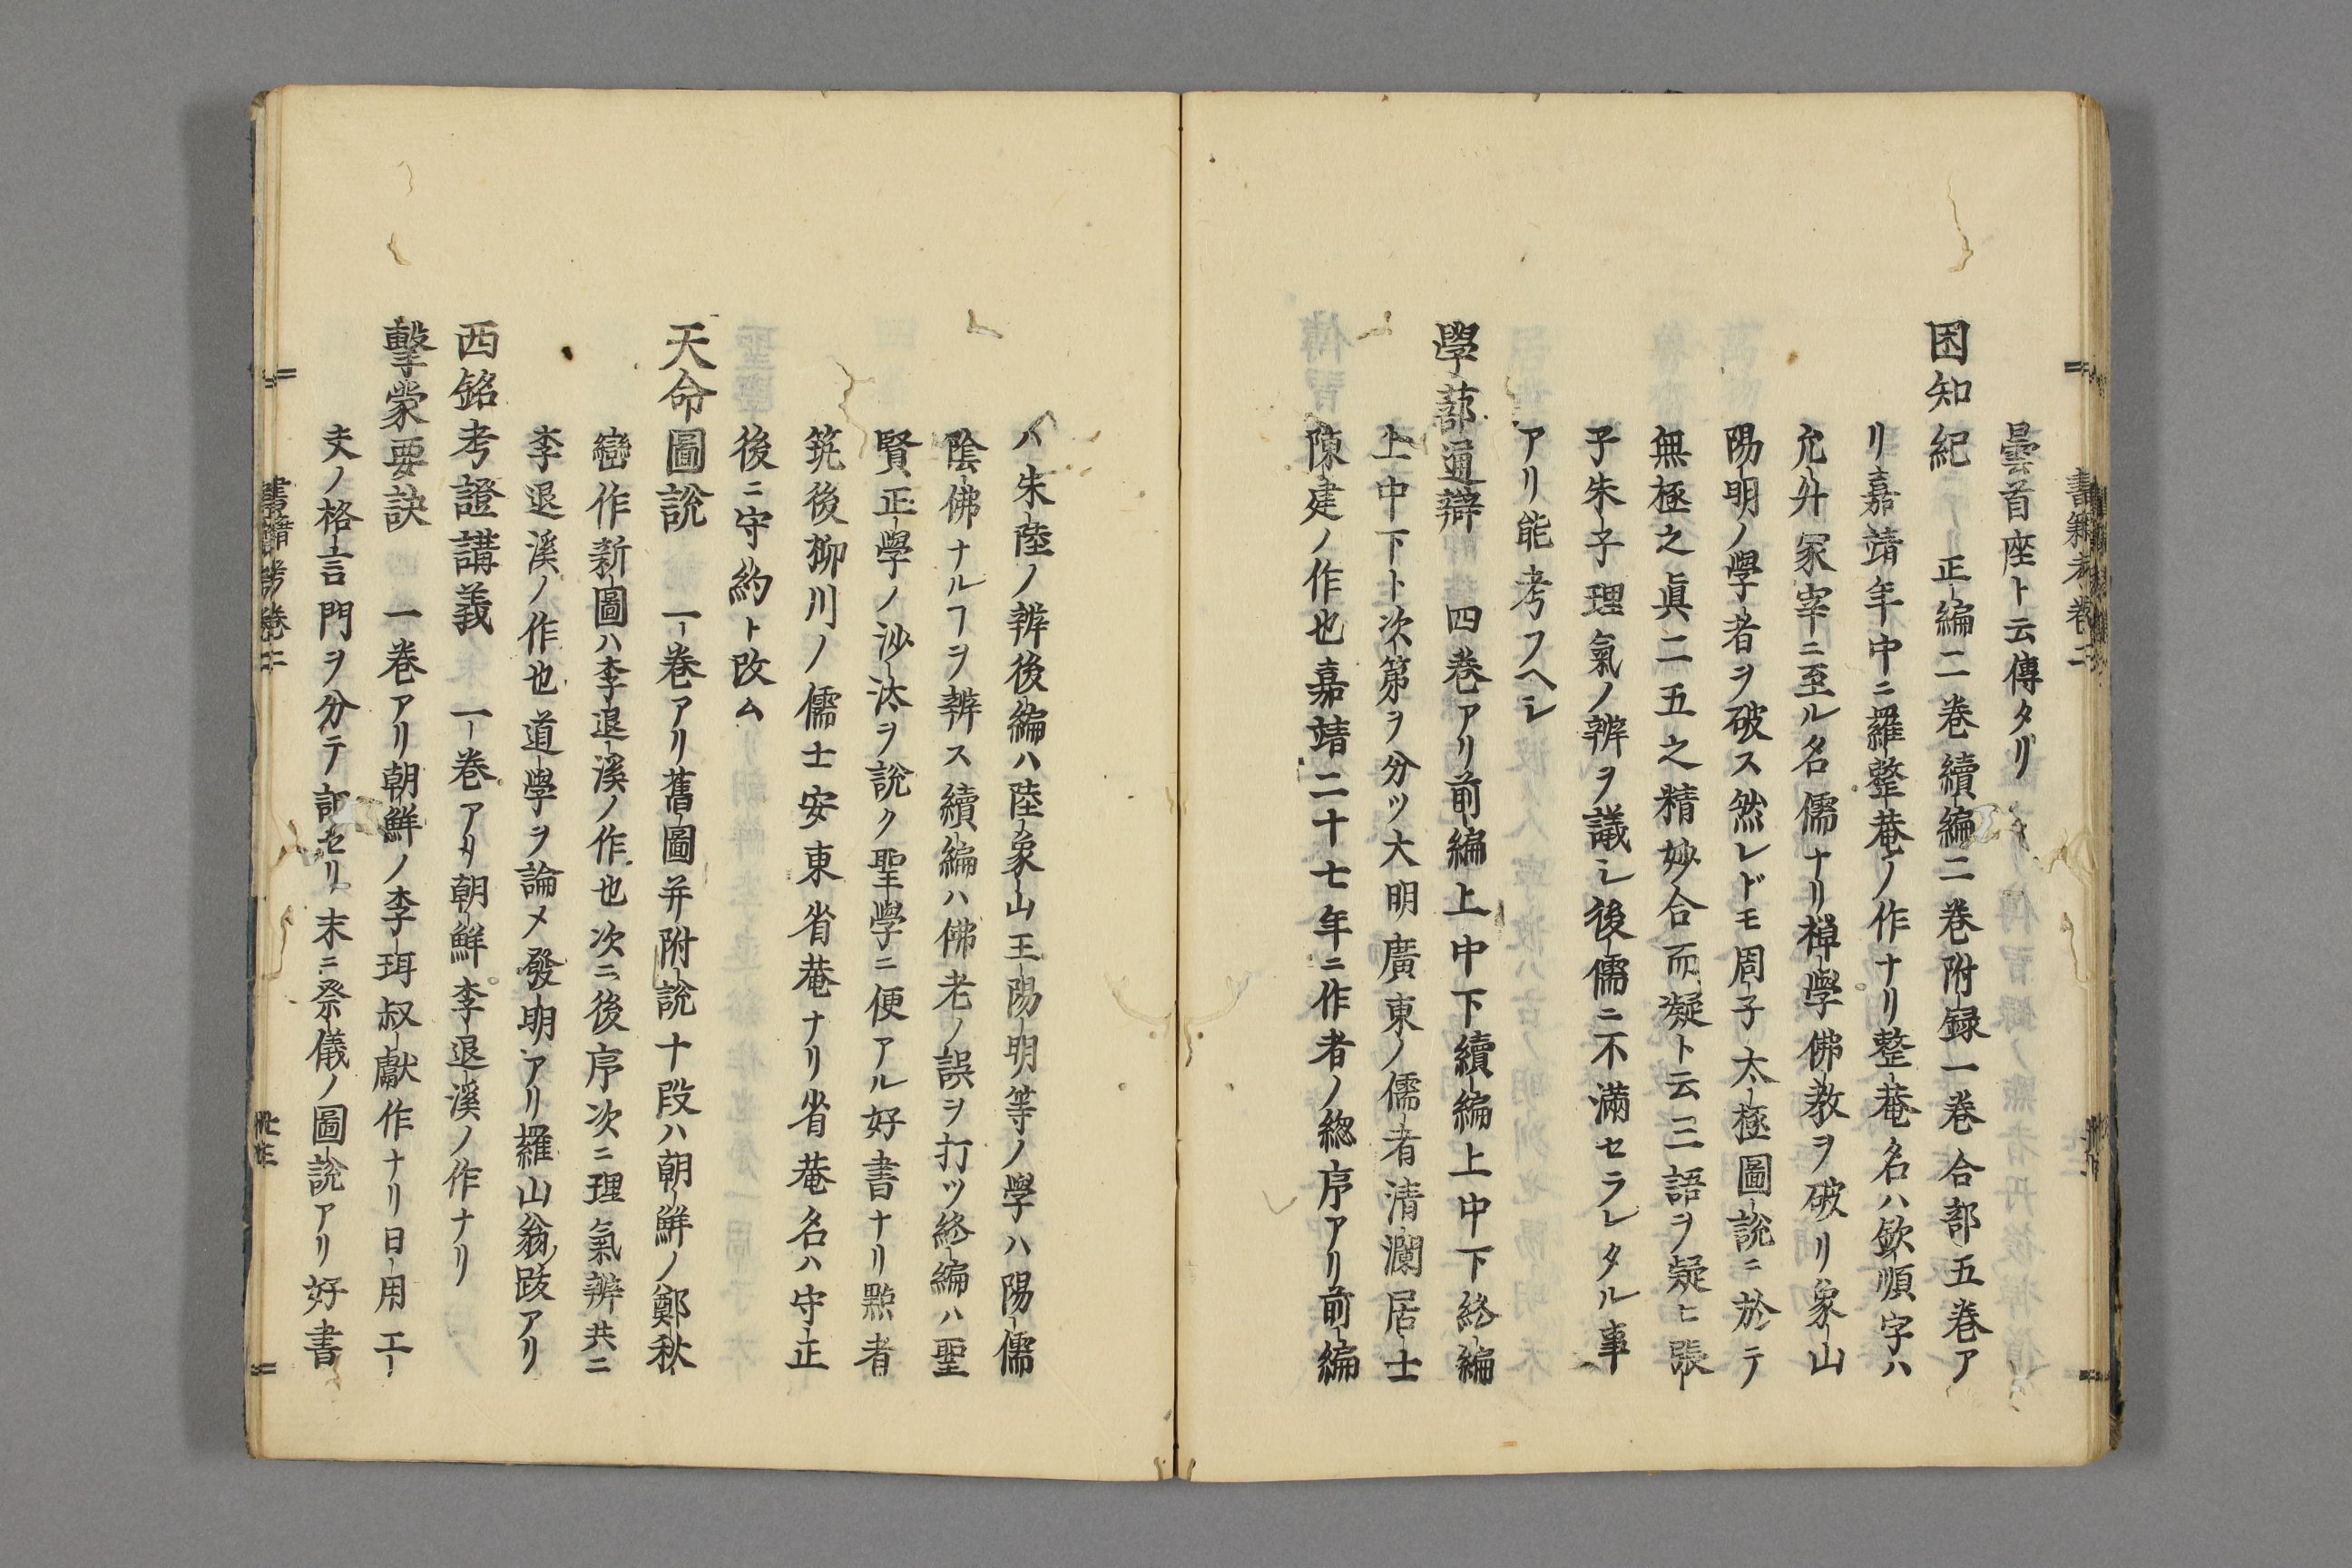 曇首座ト云傳タリ
困知紀　正編二巻續編二巻附録一巻合部五巻ア
リ嘉靖年中ニ羅整菴ノ作ナリ整菴名ハ欽順字ハ
允升冢宰ニ至ル名儒ナリ禅學佛教ヲ破リ象山
陽明ノ學者ヲ破ス然レドモ周子太極圖説ニ於テ
無極之眞二五之精妙合而凝ト云三語ヲ疑ヒ張
子朱子理氣ノ辨ヲ議シ後儒ニ不滿セラレタル事
アリ能考フヘシ
學蔀通辯　四巻アリ前編上中下續編上中下終編
上中下ト次第ヲ分ツ大明廣東ノ儒者清瀾居士
陳建ノ作也嘉靖二十七年ニ作者ノ総序アリ前編
ハ朱陸ノ辨後編ハ陸象山王陽明等ノ學ハ陽儒
陰佛ナルヿヲ辨ス續編ハ佛老ノ誤ヲ打ツ終編ハ聖
賢正學ノ沙汰ヲ説ク聖學ニ便アル好書ナリ點者
筑後柳川ノ儒士安東省菴ナリ省菴名ハ守正
後ニ守約ト改ム
天命圖説　一巻アリ舊圖并附説十段ハ朝鮮ノ鄭秋
巒作新圖ハ李退溪ノ作也次ニ後序次ニ理氣辨共ニ
李退溪ノ作也道學ヲ論メ發明アリ羅山翁ノ跋アリ
西銘考證講義　一巻アリ朝鮮李退溪ノ作ナリ
擊蒙要訣　一巻アリ朝鮮ノ李珥叔獻作ナリ日用工
夫ノ格言門ヲ分テ記セリ末ニ祭儀ノ圖説アリ好書
書籍考巻二